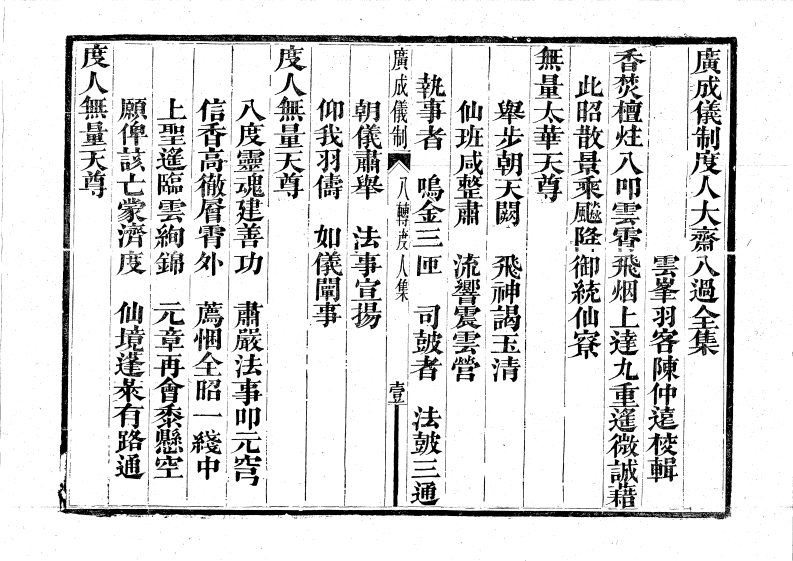 廣成儀制度人大齋八過全集
雲峯羽客陳仲遠校輯
香焚檀炷八叩雲霄飛烟上達九重遙微誠藉
此昭散景乘飈降御統仙寮
無量太華天尊
舉步朝天闕　飛神謁玉清
仙班咸整肅　流響震雲營
執事者　鳴金三匝　司鼓者　法鼓三通
廣成儀制　八轉度人集　壹
朝儀肅舉　法事宣揚
仰我羽儔　如儀闡事
度人無量天尊
八度靈魂建善功　肅嚴法事叩元穹
信香高徹層霄外　薦悃全昭一綫中
上聖遙臨雲絢錦　元章再會黍懸空
願俾該亡蒙濟度　仙境蓬萊有路通
度人無量天尊